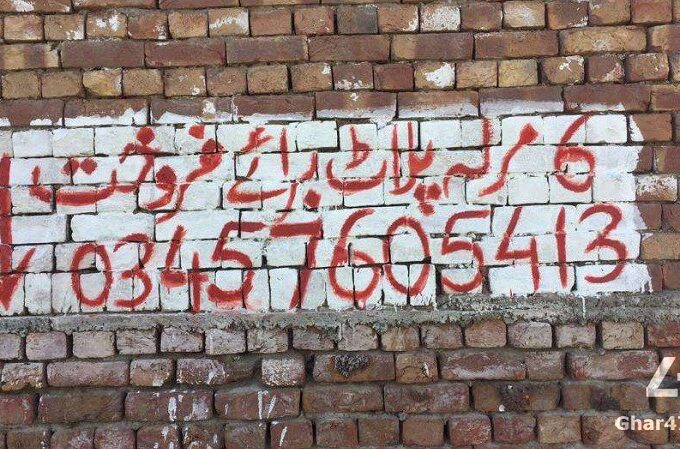 6 مرلہ پلاٹ برائے فروخت
03457605413
Ghar47